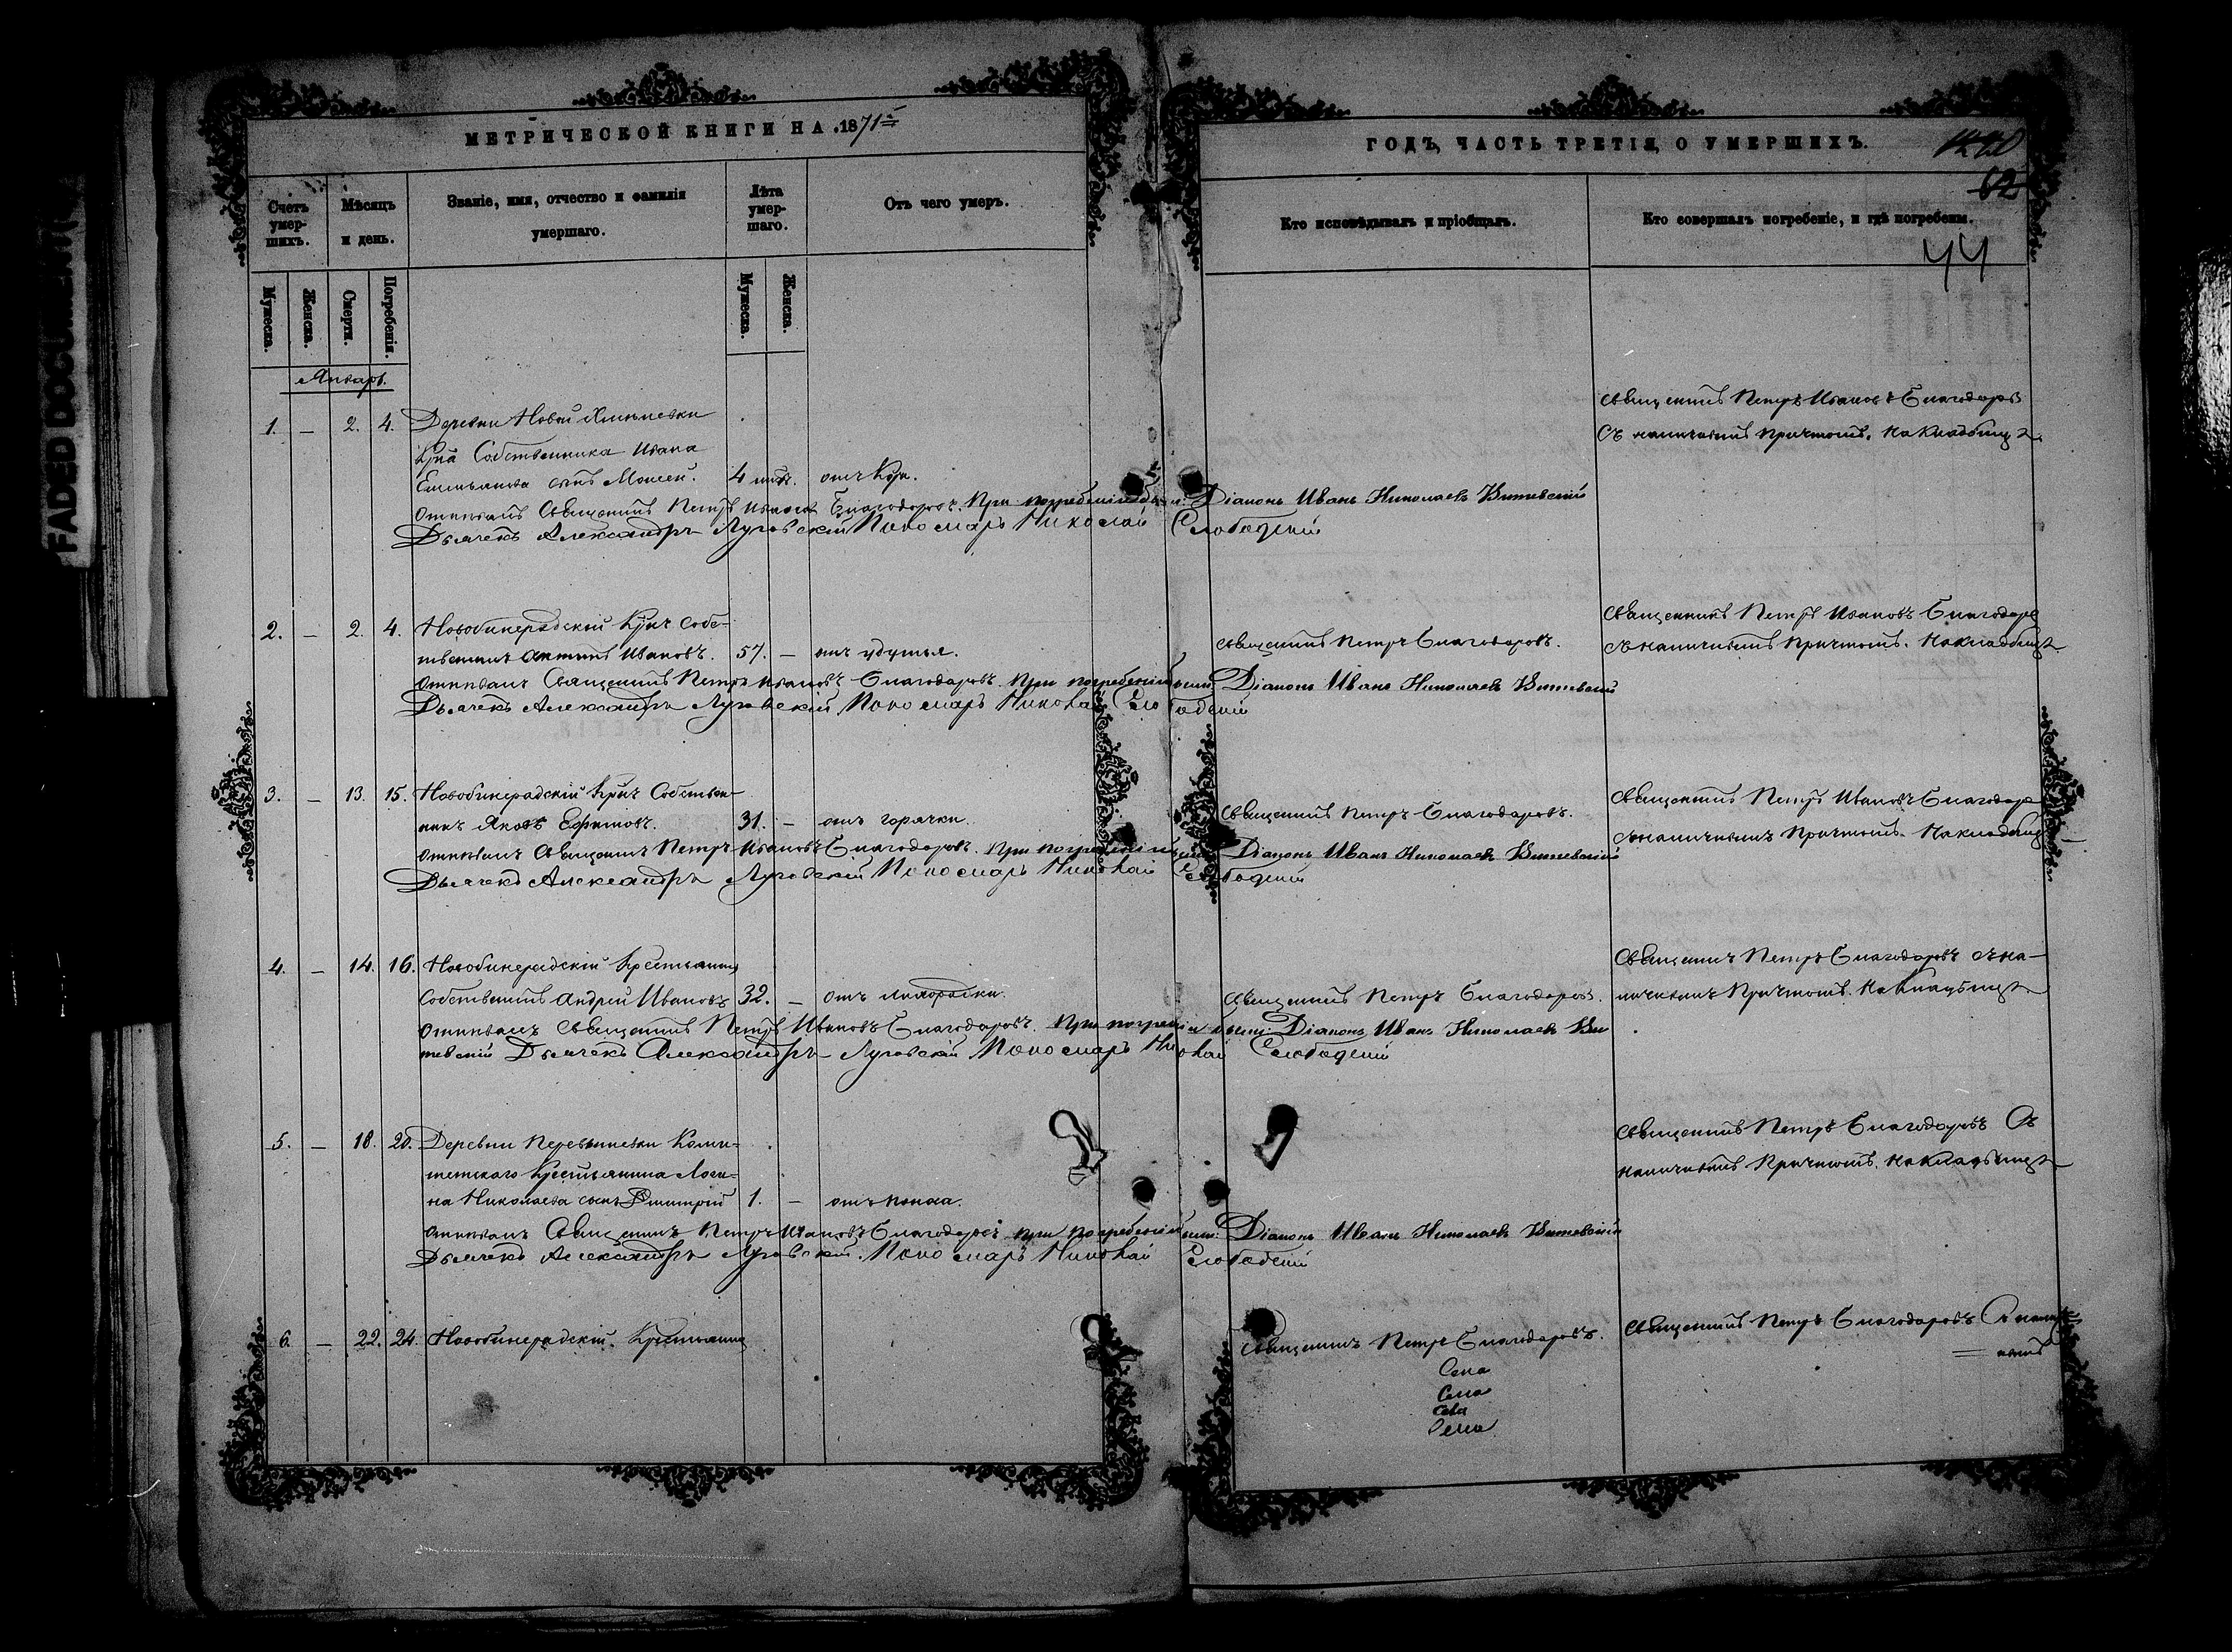 FADED DOCUMENT
МЕТРИЧЕСКОЙ КНИГИ НА 1871
Счетъ умер-шихъ.
Мѣсяцъ и день.
Званіе, имя, отчество и фамилія умершаго.
Лѣта умер-шаго.
Отъ чего умеръ.
Мужеска.
Женска.
Смерти.
Погребенія.
Мужеска.
Женска.
Январь.
1. — 2. 4. Деревни Новой
Крна Собственника Ивана
Емельянова сынъ Моисей. 4 отъ Кори.
Отпѣвалъ Священникъ Петръ Ивановъ Благодаровъ. При погребеніи были: Діаконъ Иванъ Николаевъ Витевскій
Дьячекъ Александръ Луговскій Пономарь Николай Слободскій
2. — 2. 4. Новобинерадскій Крнъ Собс-
твенникъ Антипъ Ивановъ. 57. — отъ удушья.
Отпѣвалъ Священникъ Петръ Ивановъ Благодаровъ. При погребеніи были: Діаконъ Иванъ Николаевъ Витевскій
Дьячекъ Александръ Луговскій Пономарь Николай Слободскій
3. — 13. 15. Новобинерадскій Крнъ Собствен-
никъ Яковъ Ефимовъ. 31. — отъ горячки.
Отпѣвалъ Священникъ Петръ Ивановъ Благодаровъ. При погребеніи были: Діаконъ Иванъ Николаевъ Витевскій
Дьячекъ Александръ Луговскій Пономарь Николай Слободскій
4. — 14. 16. Новобинерадскій Крестьянинъ
Собственникъ Андрей Ивановъ 32. — отъ лихорадки.
Отпѣвалъ Священникъ Петръ Ивановъ Благодаровъ. При погребеніи были: Діаконъ Иванъ Николаевъ Ви
тевскій Дьячекъ Александръ Луговскій Пономарь Николай Слободскій
5. — 18. 20. Деревни
Крестьянина Логи-
на Николаева сынъ Дмитрій 1. — отъ поноса.
Отпѣвалъ Священникъ Петръ Ивановъ Благодаровъ при погребеніи были: Діаконъ Иванъ Николаевъ Витевскій
Дьячекъ Александръ Луговскій. Пономарь Николай Слободскій
6. — 22. 24. Новобинерадскій Крестьянинъ
ГОДЪ, ЧАСТЬ ТРЕТІЯ, О УМЕРШИХЪ.
62
44
Кто исповѣдывалъ и пріобщалъ.
Кто совершалъ погребеніе, и гдѣ погребены.
Священникъ Петръ Ивановъ Благодаровъ
Съ наличнымъ причтомъ. На Кладбищѣ
Священникъ Петръ Благодаровъ.
Священникъ Петръ Ивановъ Благодаро
съ наличнымъ Причтомъ. На кладбищѣ
Священникъ Петръ Благодаровъ.
Священникъ Петръ Ивановъ Благодаро
съ наличнымъ Причтомъ. На кладбищѣ
Священникъ Петръ Благодаровъ.
Священникъ Петръ Благодаровъ съ на-
личнымъ Причтомъ. На Кладбищѣ
Священникъ Петръ Благодаровъ Съ
наличнымъ Причтомъ. На Кладбищѣ
Священникъ Петръ Благодаровъ.
Села
Села
Села
Села
Священникъ Петръ Благодаровъ Съ налич
= нымъ